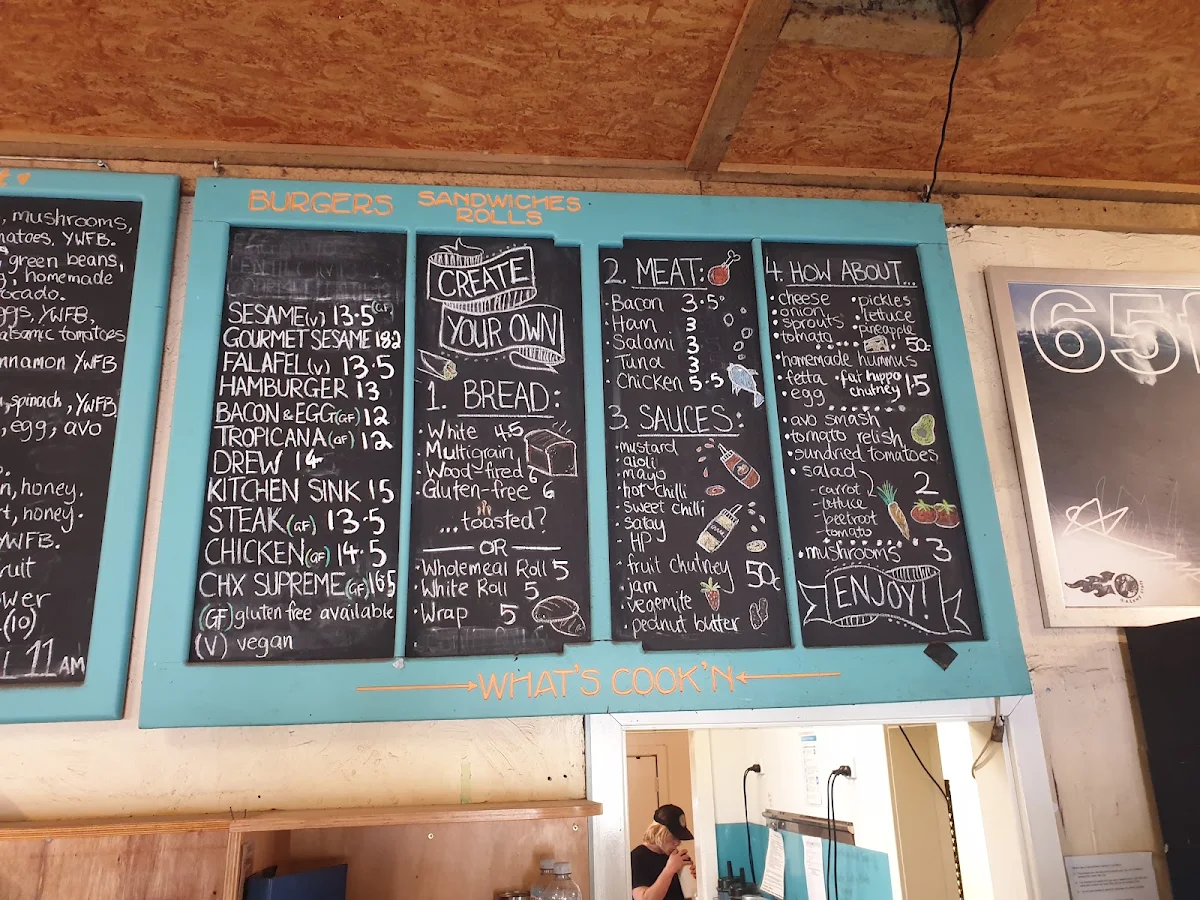 , mushrooms,
YWFB.
green beans,
, homemade
ggs, YWFB,
alsamic tomatoes
nnamon YWFB
, spinach, YWFB,
, egg, avo
n, honey.
t, honey.
YWFB.
ruit
ower
(10)
11AM
BURGERS
SESAME(V) 13.5 (GF)
GOURMET SESAME
FALAFEL(V) 13.5
HAMBURGER 13
BACON & EGG(GF) 12
TROPICANA(GF) 12
DREW 14
KITCHEN SINK 15
STEAK(GF) 13.5
CHICKEN(GF) 14.5
CHX SUPREME(GF) 16.5
(GF) gluten free available
(V) vegan
SANDWICHES
ROLLS
CREATE
YOUR OWN
1. BREAD:
• White 4.5
• Multigrain
• Wood-fired 6
• Gluten-free 6
...toasted?
OR
• Wholemeal Roll 5
• White Roll 5
• Wrap 5
2. MEAT:
• Bacon 3.5
• Ham 3
• Salami 3
• Tuna 3
• Chicken 5.5
3. SAUCES:
• mustard
• aioli
• mayo
• hot chilli
• sweet chilli
• satay
• HP
• fruit chutney 50c
• jam
• vegemite
• peanut butter
4. HOW ABOUT...
• cheese • pickles
• onion • lettuce
• sprouts • pineapple
• tomato 50c
• homemade hummus
• fetta • fat hippo
• egg chutney 1.5
• avo smash
• tomato relish
• sundried tomatoes
• salad 2
- carrot
- lettuce
- beetroot
- tomato
• mushrooms 3
ENJOY!
WHAT'S COOK'N
65f